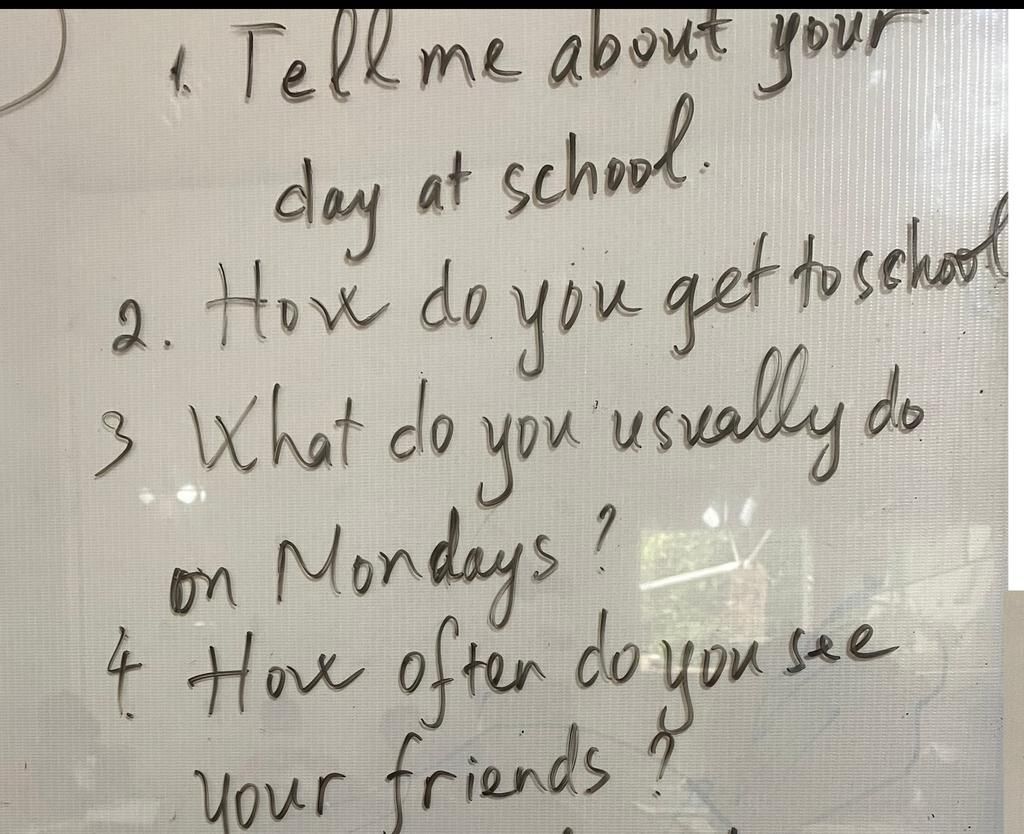 1. Tell me about your
day at school.
2. How do you get to school
3 What do you usually do
on Mondays ?
4. How often do you see
your friends ?